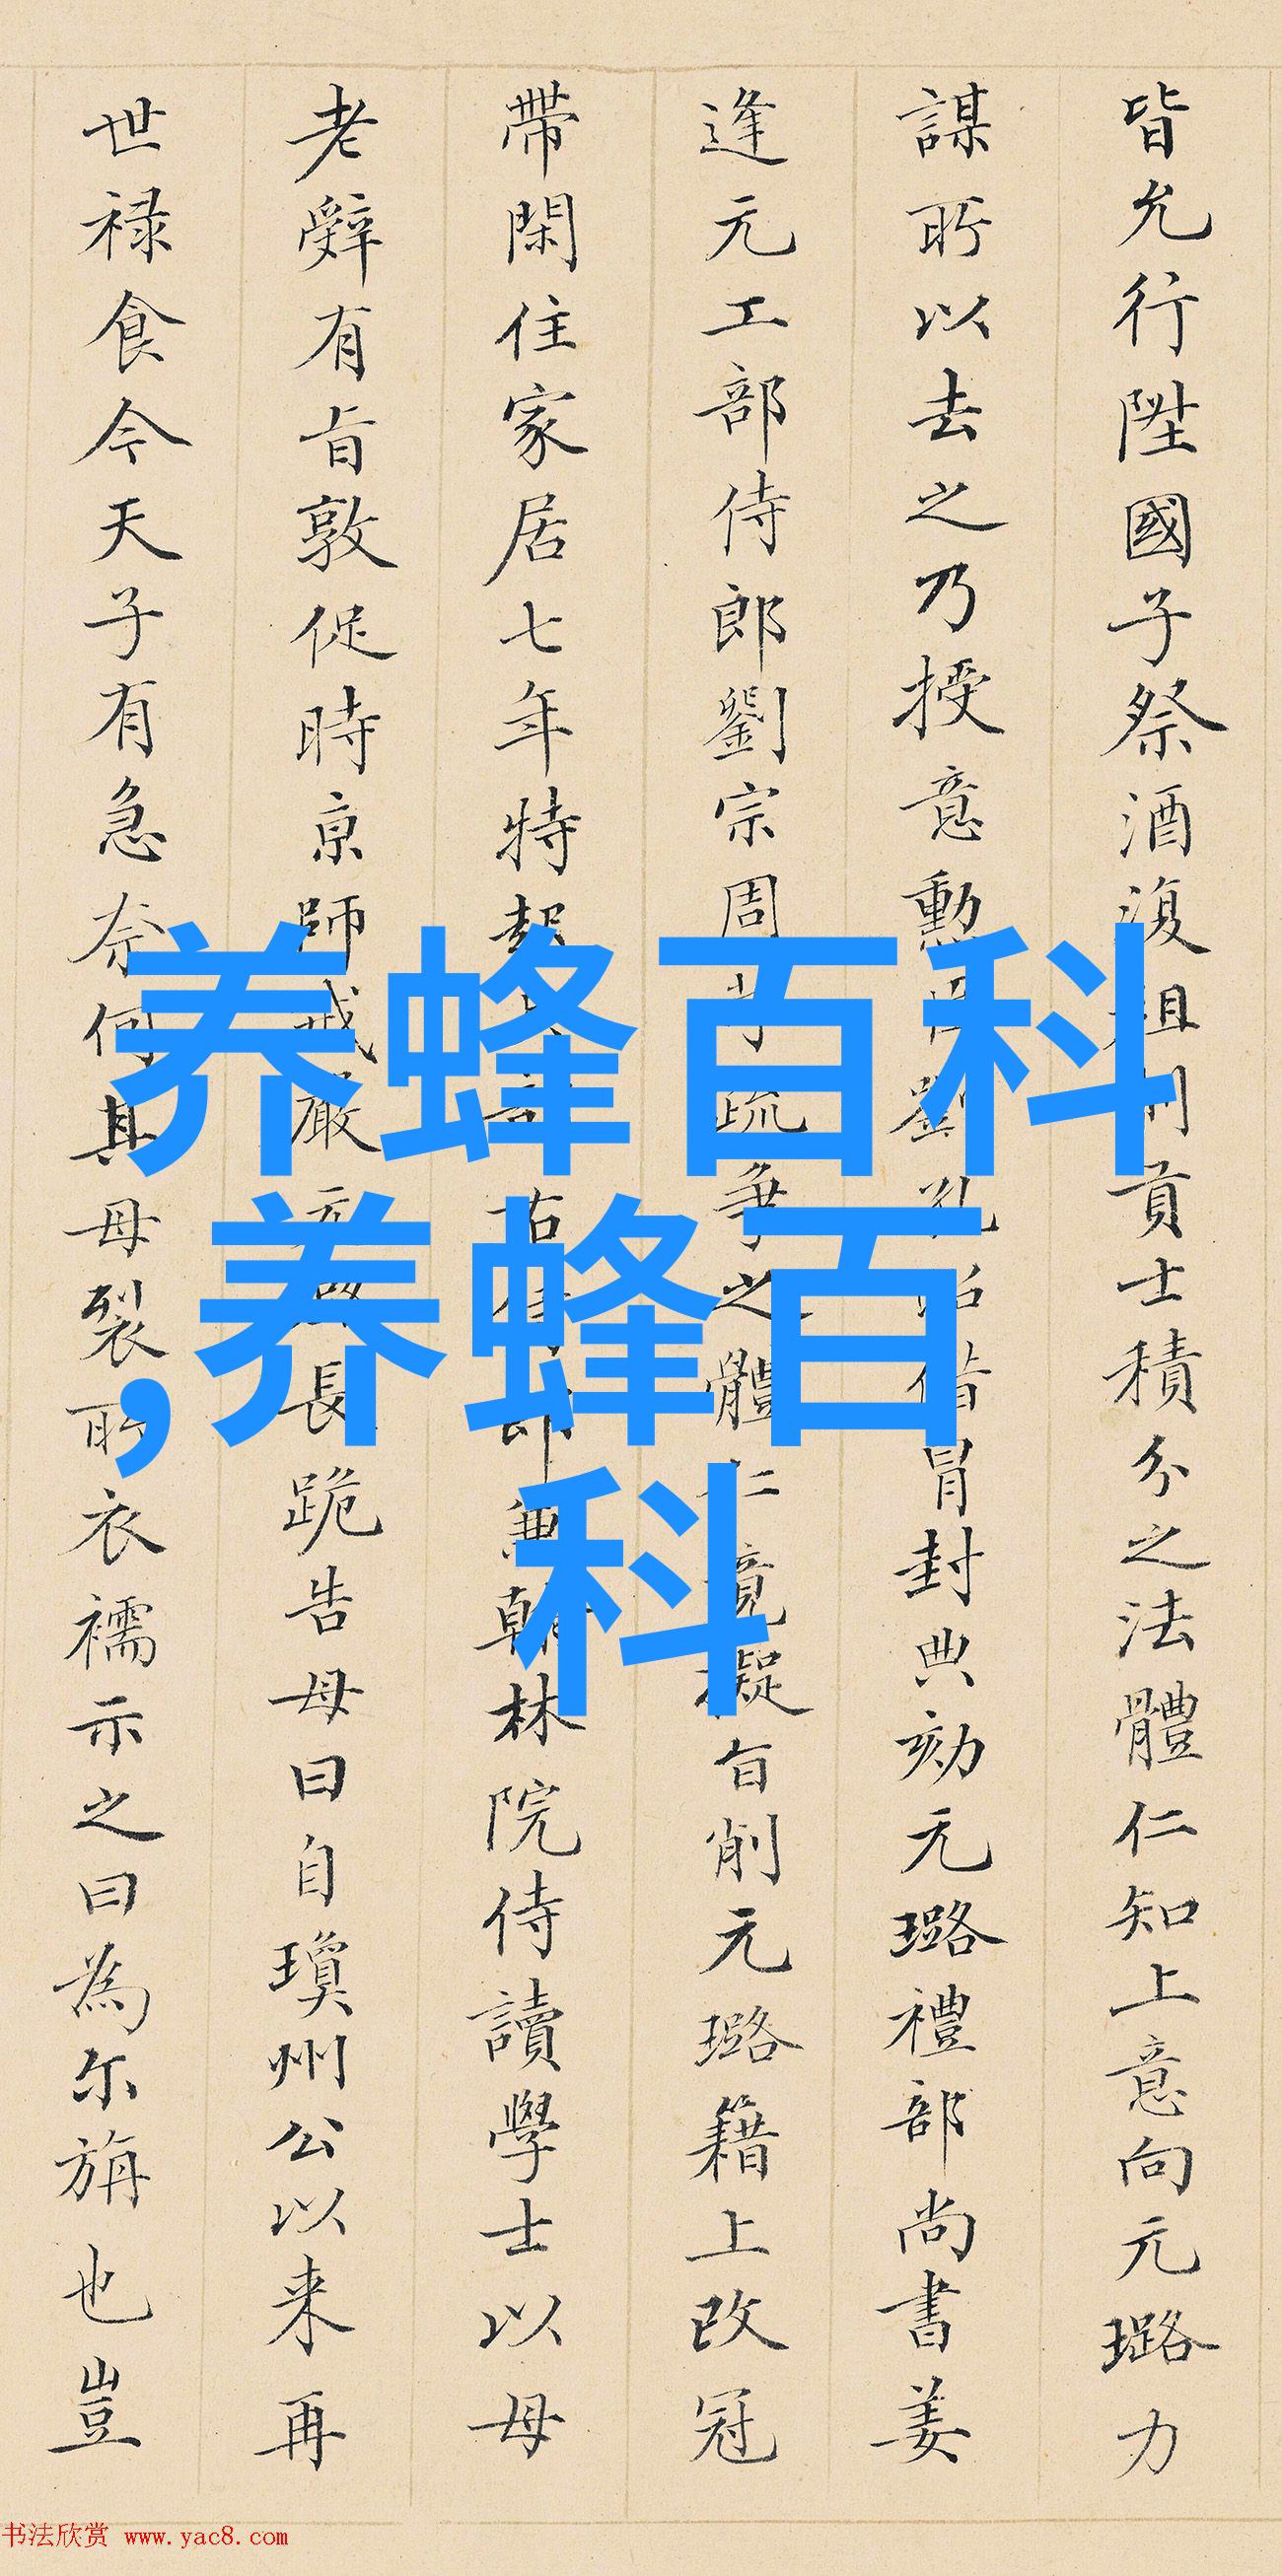 皆允行陞國子祭酒復祖制貢士積分之法體仁知上意向元璐力
謀所以去之乃授意勳臣劉孔昭借冐封典劾元璐禮部尚書姜
逢元工部侍郎劉宗周等疏爭之體仁竟擬旨削元璐籍上改冠
帶閑住家居七年特起兵部右侍郎兼翰林院侍讀學士以母
老辭有旨敦促時京師戒嚴長跪告母曰自瓊州公以来再
世禄食今天子有急奈何其母裂所衣襦示之曰為尔旃也豈
养蜂百科
,养蜂百
科
书法欣赏 www.yac8.com